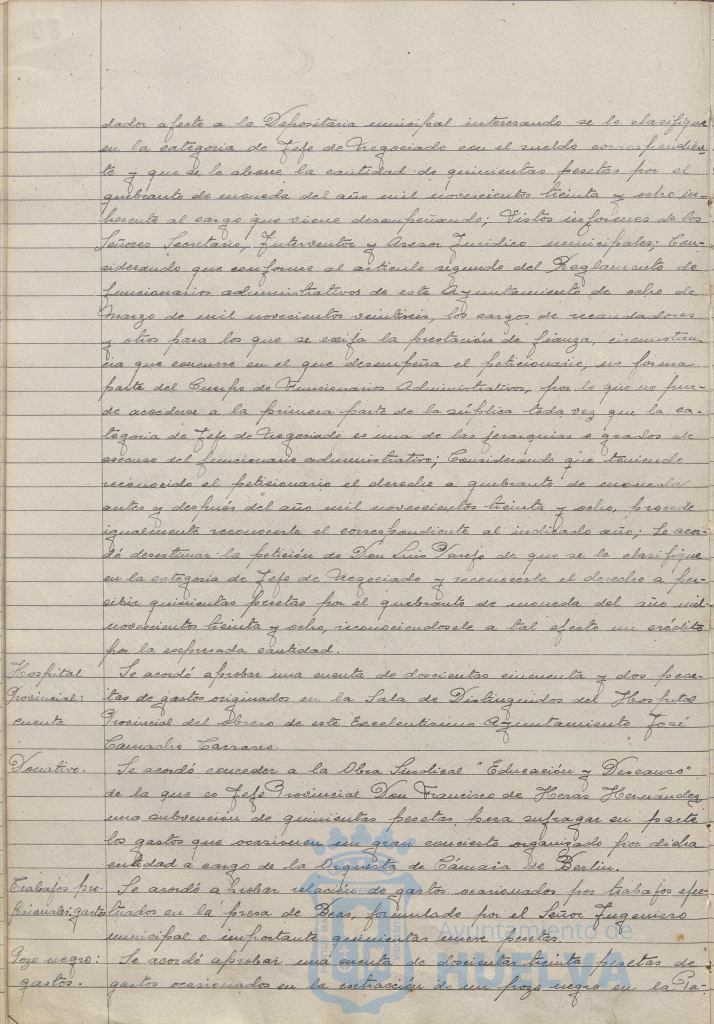 dador afecto a la Depositaria municipal interesando se le clasifique
en la categoria de Jefe de Negociado con el sueldo correspondien-
te y que se le abone la cantidad de quinientas pesetas por el
quebranto de moneda del año mil novescientos treinta y ocho in-
herente al cargo que viene desempeñando; Vistos informes de los
Señores Secretario, Interventor y Asesor Juridico municipales; Con-
siderando que conforme al articulo segundo del Reglamento de
funcionarios administrativos de este Ayuntamiento de ocho de
Marzo de mil novecientos veintiseis, los cargos de recaudadores
y otros para los que se exija la prestación de fianza, circunstan-
cia que concurre en el que desempeña el peticionario, no forma
parte del Cuerpo de Funcionarios Administrativos, por lo que no pue-
de accederse a la primera parte de la súplica toda vez que la ca-
tegoria de Jefe de Negociado es una de las jerarquias o grados de
ascenso del funcionario administrativo; Considerando que teniendo
reconocido el peticionario el derecho a quebranto de moneda
antes y después del año mil novescientos treinta y ocho, procede
igualmente reconocerle el correspondiente al indicado año; Se acor-
dó desestimar la petición de Don Luis Varejo de que se le clasifique
en la categoria de Jefe de Negociado y reconocerle el derecho a per-
cibir quinientas pesetas por el quebranto de moneda del año mil
novescientos treinta y ocho, reconociendosele a tal efecto un crédito
por la expresada cantidad.
Hospital Provincial: cuenta
Se acordó aprobar una cuenta de doscientas cincuenta y dos pese-
tas de gastos originados en la Sala de Distinguidos del Hospital
Provincial del obrero de este Excelentisimo Ayuntamiento José
Camacho Carrasco.
Donativo.
Se acordó conceder a la Obra Sindical "Educación y Descanso"
de la que es Jefe Provincial Don Francisco de Heras Hernández
una subvención de quinientas pesetas para sufragar en parte
los gastos que ocasionen un gran concierto organizado por dicha
entidad a cargo de la Orquesta de Cámara de Berlin.
Trabajos pre-
gasto
Se acordó aprobar relación de gastos ocasionados por trabajos efec-
tuados en la presa de Beas, formulado por el Señor Ingeniero
municipal e importante quinientas nueve pesetas.
Pozo negro: gastos.
Se acordó aprobar una cuenta de doscientas treinta pesetas de
gastos ocasionados en la extracción de un pozo negro en la Pa-
Ayuntamiento de
HUELVA